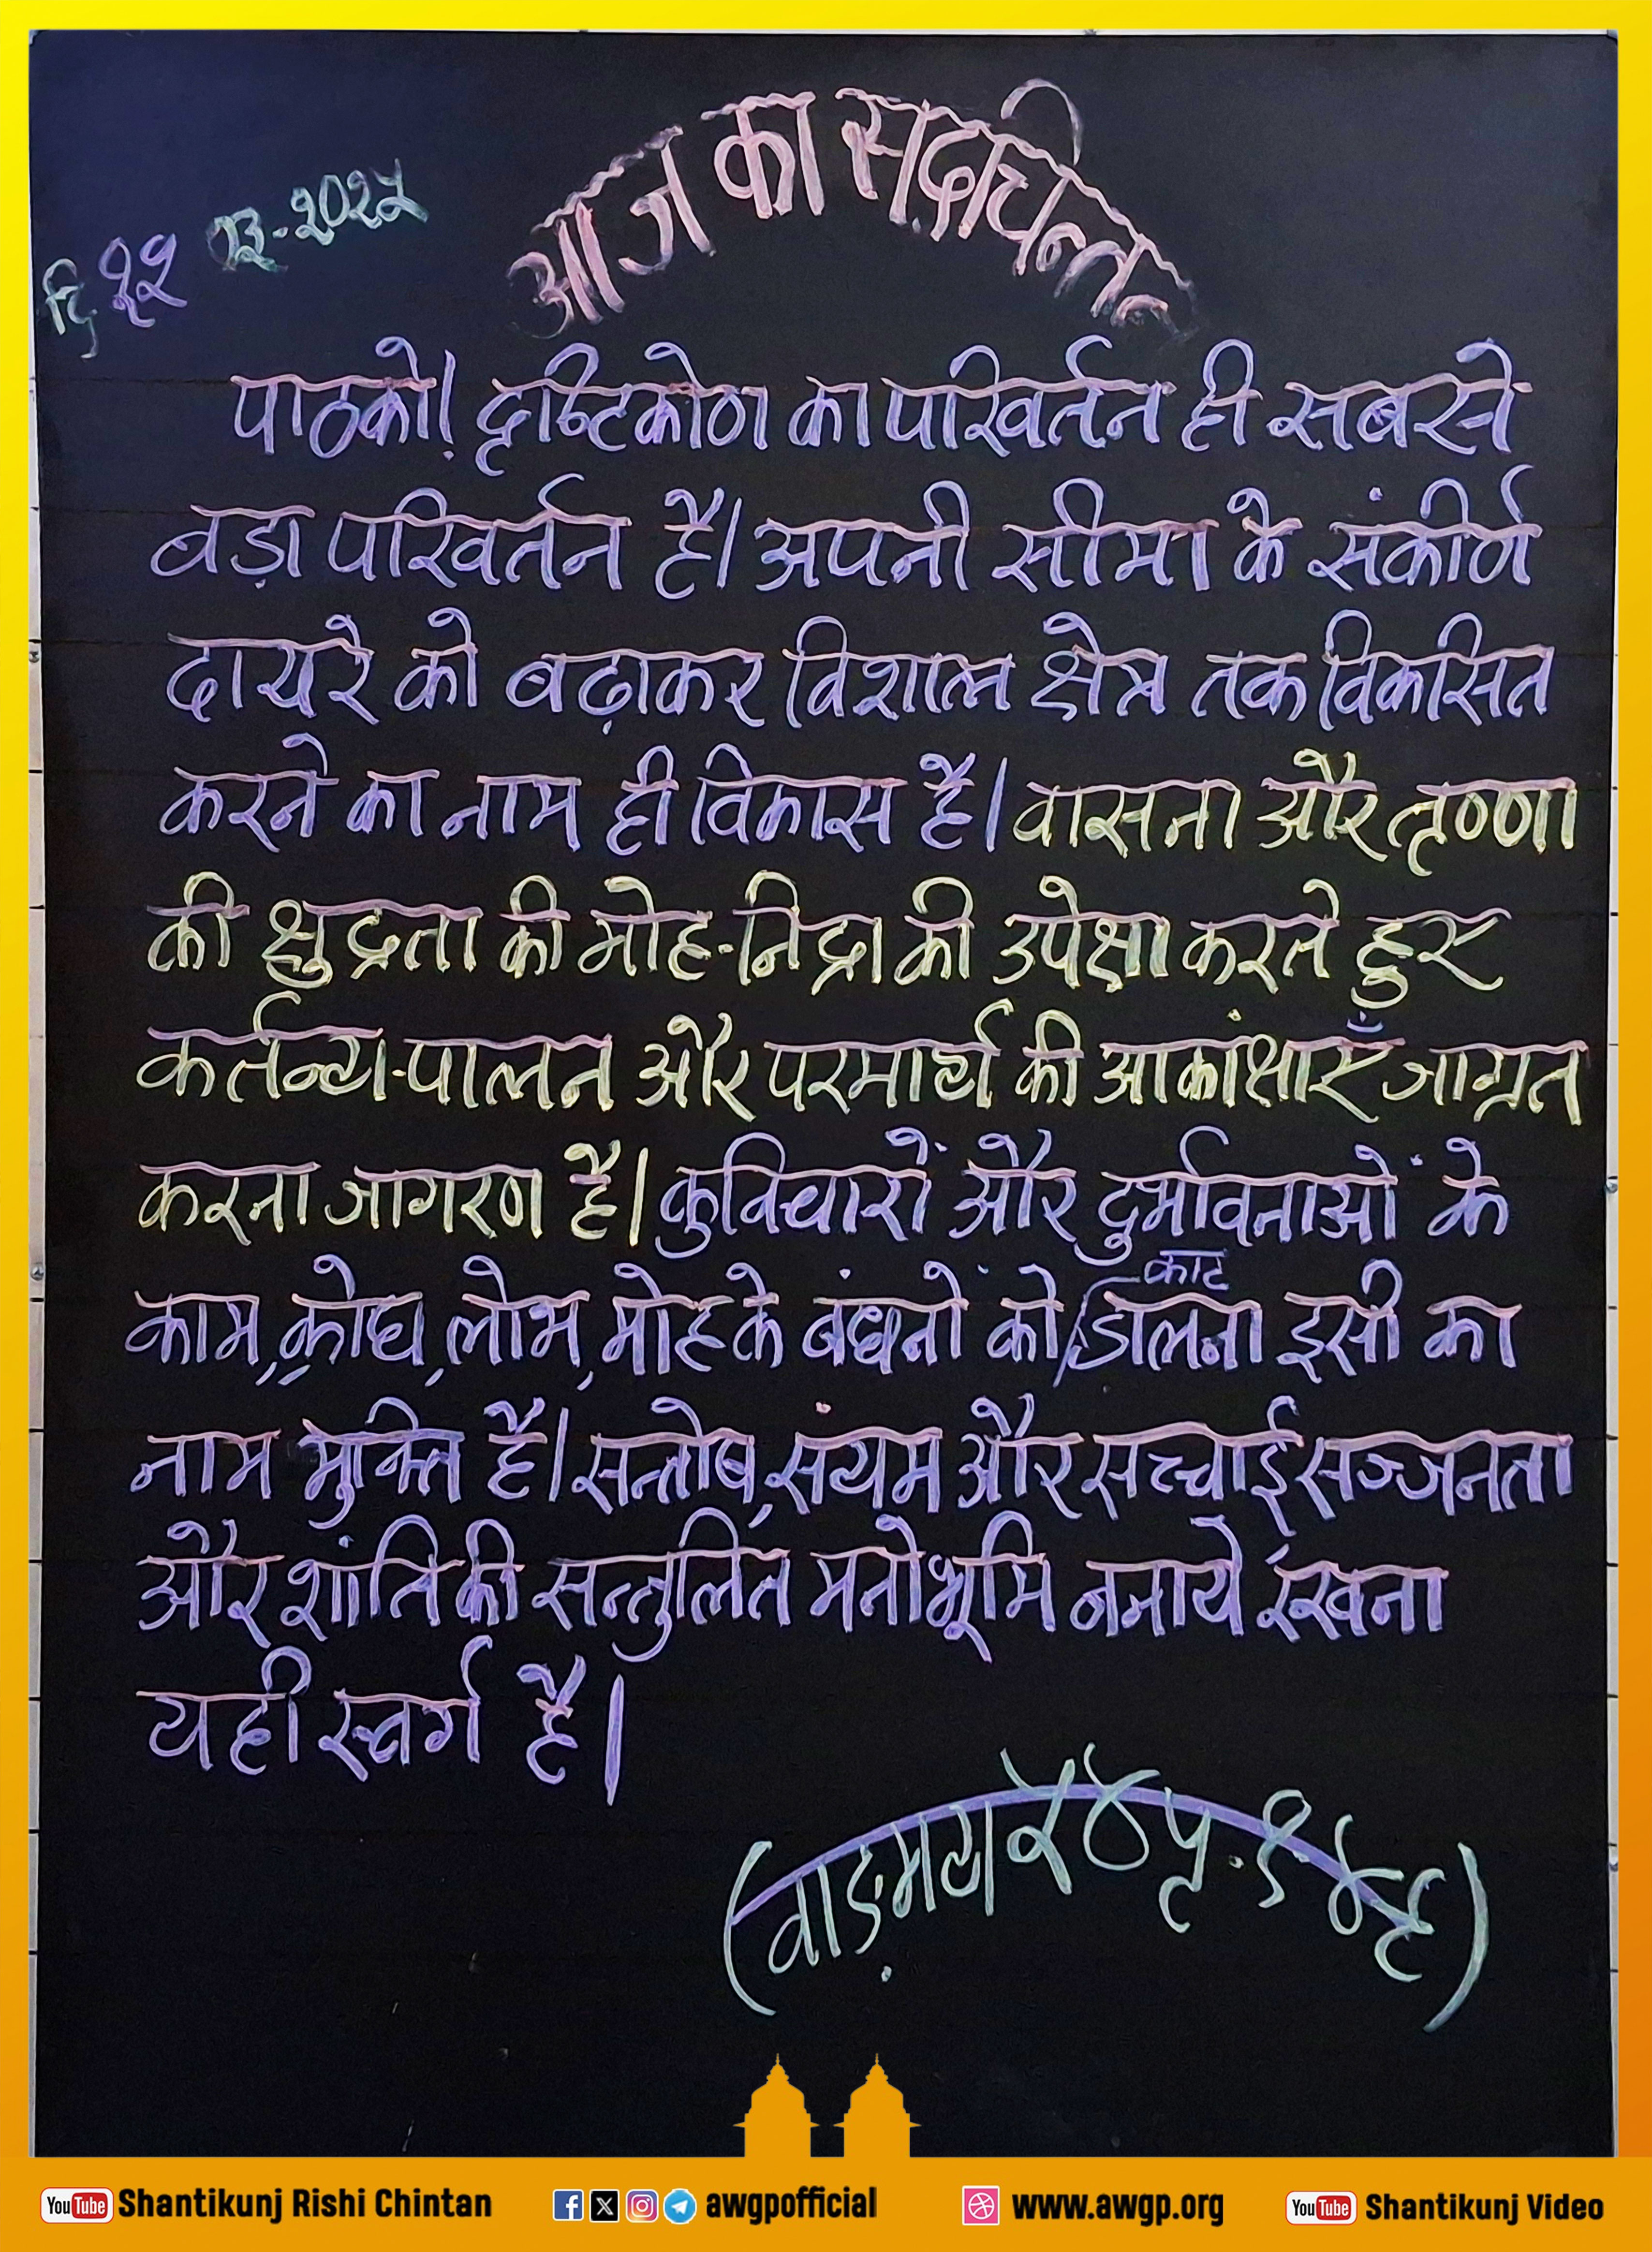 आज का सदचिन्तन
दि ११ ०३-२०२५
पाठको! दृष्टिकोण का परिवर्तन ही सबसे
बड़ा परिवर्तन है। अपनी सीमा के संकीर्ण
दायरे को बढ़ाकर विशाल क्षेत्र तक विकसित
करने का नाम ही विकास है। वासना और तृष्णा
की क्षुद्रता की मोह-निद्रा की उपेक्षा करते हुए
कर्तव्य-पालन और परमार्थ की आकांक्षाएँ जाग्रत
करना जागरण है। कुविचारों और दुर्भावनाओं के
काम, क्रोध, लोभ, मोह के बंधनों को काट डालना इसी का
नाम मुक्ति है। सन्तोष, संयम और सच्चाई सज्जनता
और शांति की सन्तुलित मनोभूमि बनाये रखना
यही स्वर्ग है।
(वाङ़मय पृ.
YouTube Shantikunj Rishi Chintan awgpofficial www.awgp.org YouTube Shantikunj Video